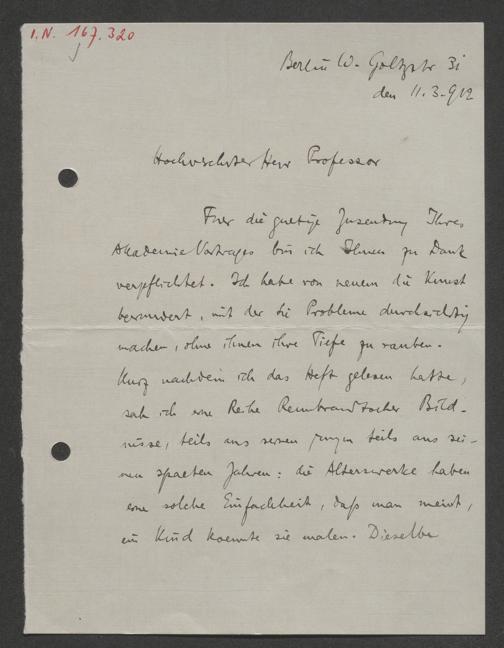 I. N. 167.320
Berlin W. Goltzstr 31
den 11.3.912
Hochverehrter Herr Professor
Fuer die guetige Zusendung Ihres
Akademie Vortrages bin ich Ihnen zu Dank
verpflichtet. Ich habe von neuem die Kunst
bewundert, mit der Sie Probleme durchsichtig
machen, ohne ihnen ihre Tiefe zu rauben.
Kurz nachdem ich das Heft gelesen hatte,
sah ich eine Reihe Rembrandtscher Bild-
nisse, teils aus seinen jungen teils aus sei-
nen spaeten Jahren: die Alterswerke haben
eine solche Einfachheit, daß man meint,
ein Kind koennte sie malen. Dieselbe